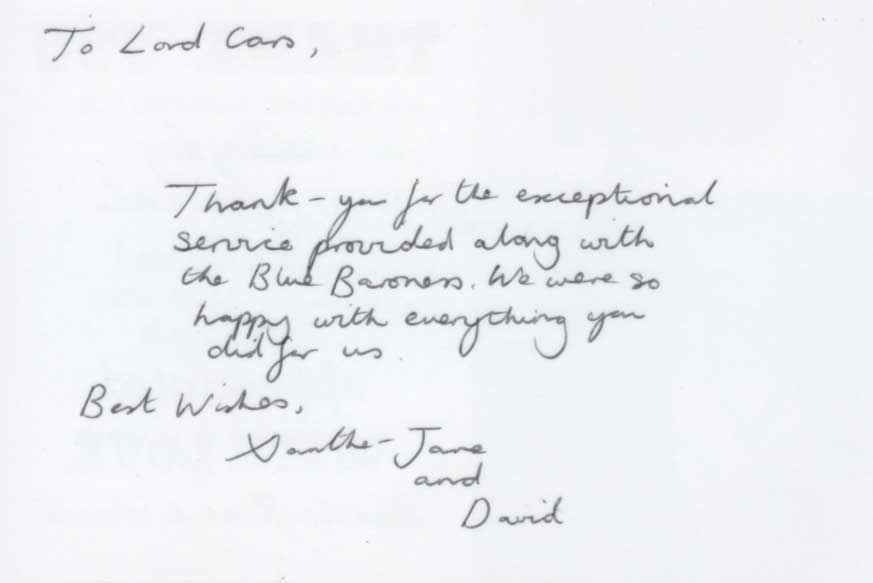 To Lord Cars,
Thank-you for the exceptional
service provided along with
the Blue Baroness. We were so
happy with everything you
did for us.
Best Wishes,
Xanthe-Jane
and
David